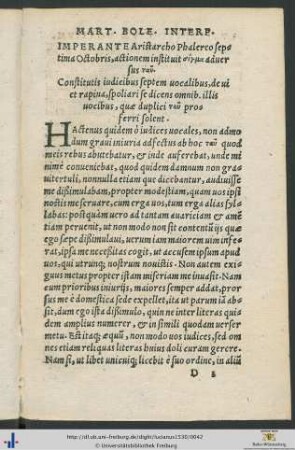 MART. BOLE. INTERP.
IMPERANTE Aristarcho Phalereo sep
tima Octobris, actionem instituit σίγμα aduer
sus ταῦ.
Constitutis iudicibus septem uocalibus, de ui
et rapina, spoliari se dicens omnib. illis
uocibus, quæ duplici ταῦ pro
ferri solent.
HActenus quidem ô iudices uocales, non admo
dum graui iniuria adfectus ab hoc ταῦ quod
meis rebus abutebatur, & inde auferebat, unde mi
nime conueniebat, quod quidem damnum non gra
uiter tuli, nonnulla etiam que dicebantur, audiuisse
me dissimulabam, propter modestiam, quam uos ipsi
nostis me seruare, cum erga uos, tum erga alias syl
labas: postquam uero ad tantam auaritiam & amē
tiam peruenit, ut non modo non sit contentū ijs quæ
ego sæpe dissimulaui, uerum iam maiorem uim infe
rat, ipsa me necessitas cogit, ut accusem ipsum apud
uos, qui utrunq; nostrum nouistis. Non autem exi
guus metus propter istam miseriam me inuasit. Nam
eum prioribus iniurijs, maiores semper addat, pror
sus me è domestica sede expellet, ita ut parum iā ab
sit, dum ego ista dissimulo, quin ne inter literas qui
dem amplius numerer, & in simili quodam uerser
metu. Est itaq; æquū, non modo uos iudices, sed om
nes etiam reliquas literas huius doli curam gerere.
Nam si, ut libet unicuiq; licebit è suo ordine, in aliū
D 2
http://dl.ub.uni-freiburg.de/diglit/lucianus1530/0042
© Universitätsbibliothek Freiburg